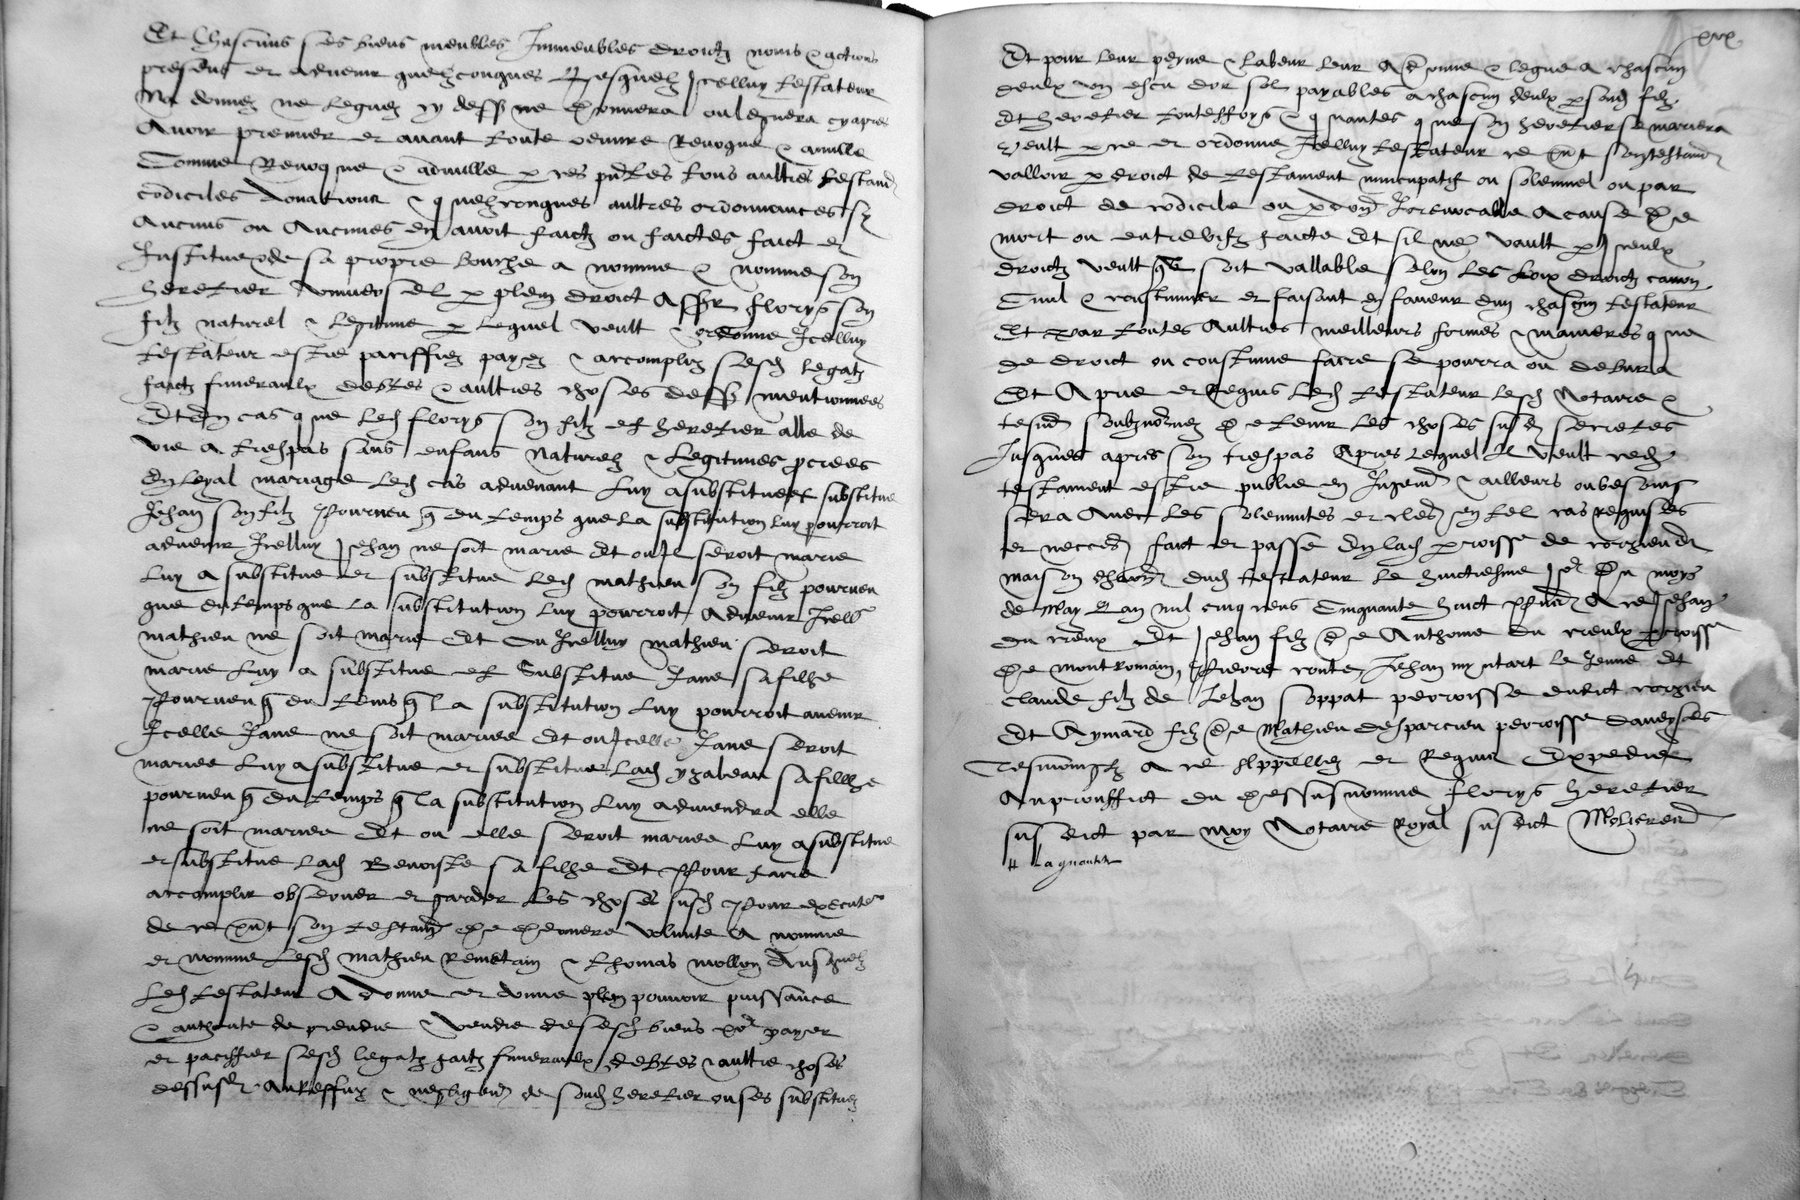 Et Chascuns ses biens meubles Immeubles droictz noms & actions
presens et advenir quelzconques Desquelz Icelluy testateur
Na donnez ne leguez cy dess ne donnera ou leguera cy apres
Avoir premier et avant toute oeuvre Revoque & anulle
Comme Revoque & adnulle p ces pntes tous aultres testam
codicilles donations & quelzconques aultres ordonnances sy
Aucuns ou Aucunes en avoit faictz ou faictes faict et
Institue & de sa propre bouche a nomme & nomme son
heretier universel p plein droict Asscr florys son
filz naturel & legitime p lequel veult & ordonne Icelluy
testateur estre pariffiez payez & accomplir sesd legatz
faictz funeraulx debtes & aultres choses dess mentionnees
Et en cas que led florys son filz et heretier alle de
vie a trespas sans enfans naturelz & legitimes pcrees
En leyal mariage led cas advenant luy a substitue et substitue
Jehan son filz Pourveu q du temps que la substitution luy pourroit
advenir Icelluy Jehan ne soit marie Et ou Il seroit marie
luy a substitue et substitue led mathieu son filz pourveu
que du temps que la substitution luy pourroit Advenir Icell
mathieu ne soit marie Et ou Icelluy mathieu seroit
marie luy a substitue et substitue Jane sa filhe
Pourveu q du temps q la substitution luy pourroit avenir
Icelle Jane ne soit mariee Et ou Icelle Jane seroit
mariee luy a substitue et substitue lad yzabeau sa fillhe
pourveu q du temps q la substitution luy adviendra elle
ne soit mariee Et ou elle seroit mariee luy a substitue
et substitue lad Benoiste sa filhe Et Pour faire
accomplir observer et garder les choses susd Pour executer
de ce pnt son testam de derniere volunte A nomme
et nomme lesd mathieu & thomas mollon Ausquelz
led testateur A donne et donne plein pouvoir puissance
& authorite de prendre & vendre de sesd biens po payer
et paciffier sesd legatz faictz funeraulx debtes & aultre choses
dessusd Au reffuz & negligen de sond heretier ou ses substituez
xxx
Et pour leur peyne & labeur leur A donne & legue a chascun
deulx ung escu dor sol payables a chascun deulx p sond filz
Et heretier touteffoys & quantes que son heretier se mariera
veult p ce et ordonne Icelluy testateur ce pnt son testam
valloir p droict de testament nuncupatif ou solemnel ou par
droict de codicile ou p don Irrevocable A cause de
mort ou entre vifz faicte Et sil ne vault p Iceulx
droictz veult q soit vallable selon les loix droictz canon
Civil & coustumier et faisant en faveur dun chascun testateur
Et par toutes Aultres meilleurs formes & manieres que
de droict ou coustume faire se pourra ou debvra
Et A prie et Requis led testateur lesd Notaire &
tesm soubznomez de tenir les choses susd secretes
Jusques apres son trespas Apres lequel Il veult ced
testament estre publie en Jugem & ailleurs ou besoing
sera Avec les solemnites et cles en tel cas requises
et necces faict et passe En lad proisse de
maison dud testateur le huictiesme Jo du moys
de May Lan mil cinq cens Cinquante huict Pns A ce Jehan
du creux Et Jehan filz de Anthoine du creulx proisse
de montromain, Pierre conte, Jehan le Jeune Et
Claude filz de Jehan soppat perroisse dudict
Et Aymard filz de Mathieu desparcieu perroisse daveyses
Tesmoingtz A ce Appellez et Requis Expediee
Au prouffict du dessus nomme florys heretier
susdict par moy Notaire Royal susdict